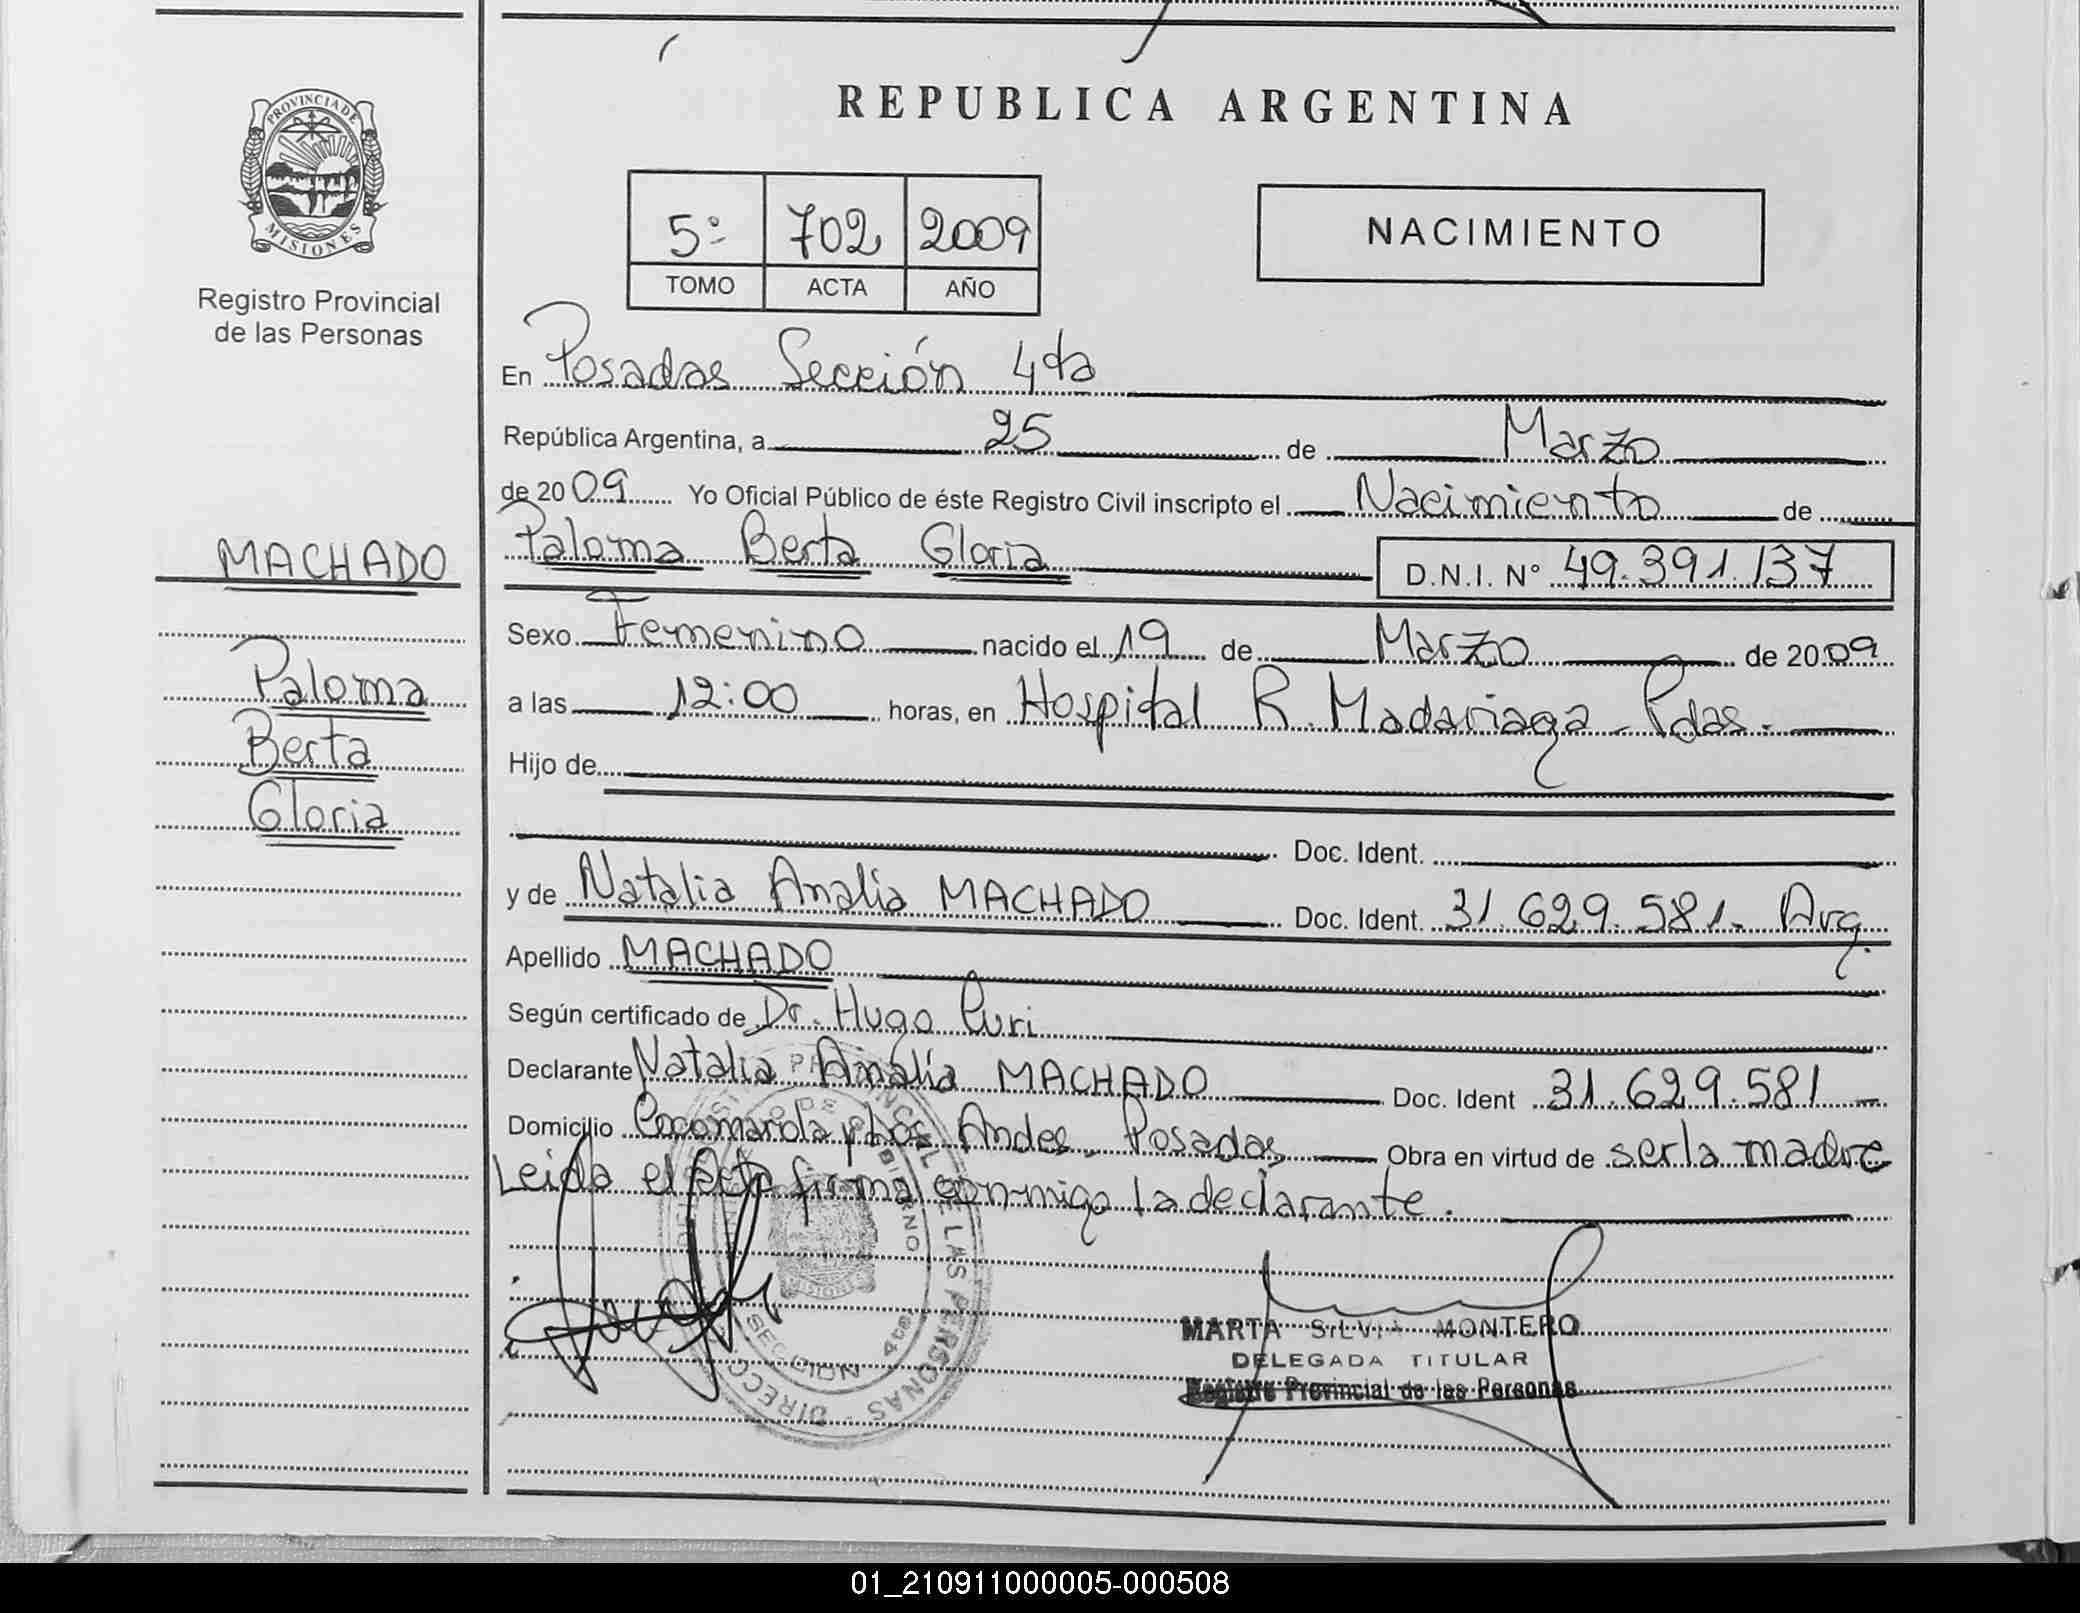 REPUBLICA ARGENTINA
PROVINCIA DE
MISIONES
Registro Provincial
de las Personas
5º 702 2009
TOMO ACTA AÑO
NACIMIENTO
En Posadas Sección 4ta
República Argentina, a 25 de Marzo
de 2009 Yo Oficial Público de éste Registro Civil inscripto el Nacimiento de
MACHADO
Paloma
Berta
Gloria
Paloma Berta Gloria D.N.I. Nº 49.391.137
Sexo Femenino nacido el 19 de Marzo de 2009
a las 12:00 horas, en Hospital R. Madariaga - Pdas.
Hijo de
Doc. Ident.
y de Natalia Analia MACHADO Doc. Ident. 31.629.581- Arg.
Apellido MACHADO
Según certificado de Dr. Hugo
Declarante Natalia Analia MACHADO Doc. Ident 31.629.581
Domicilio Cocomarola y Los Andes - Posadas Obra en virtud de ser la madre
Leida el Acta firma conmigo la declarante.
SECCION 4ta
MARTA SILVIA MONTERO
DELEGADA TITULAR
Registro Provincial de las Personas
01_210911000005-000508